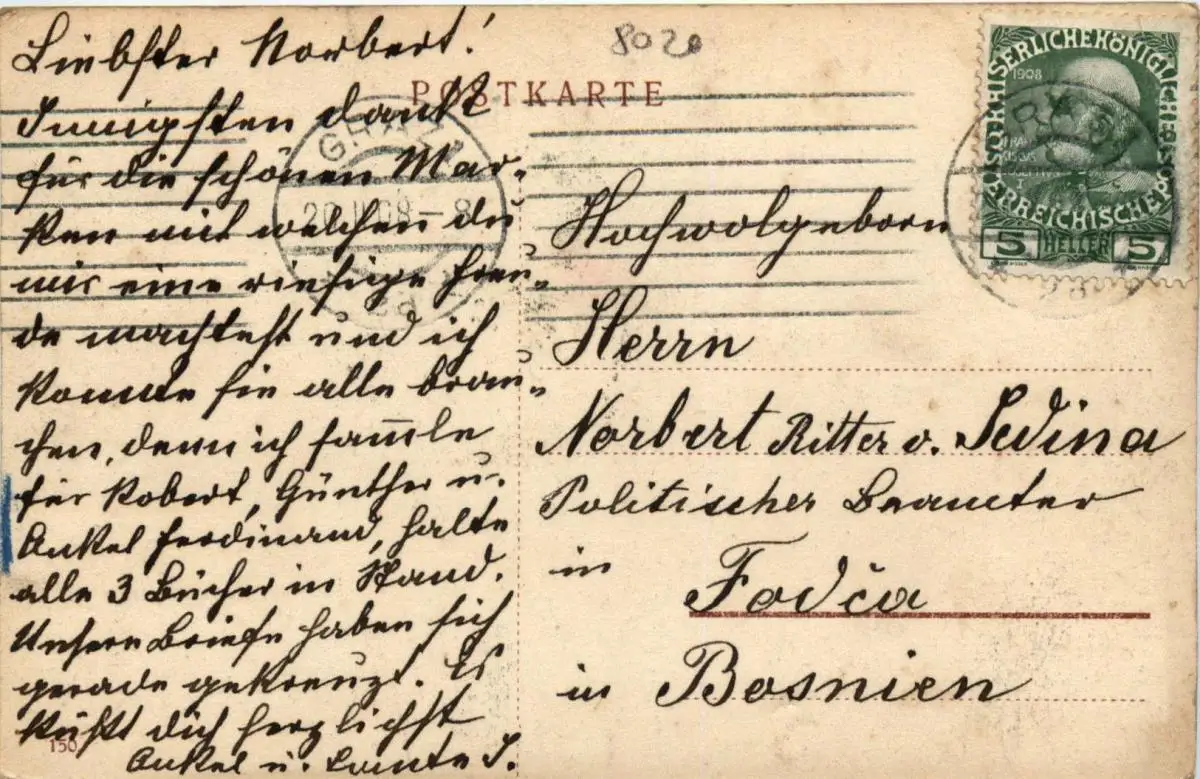 Liebster Norbert!
Innigsten Dank
für die schönen Mar-
ken mit welchen du
mir eine riesige Freu-
de machtest und ich
konnte sie alle brau-
chen, denn ich sam̄le
für Robert, Günther u.
Onkel Ferdinand, halte
alle 3 Bücher in Stand.
Unsere Briefe haben sich
gerade gekreuzt. Es
küßt dich herzlichst
Onkel u. Tante I.
150
8020
POSTKARTE
GRAZ
20. II. 08 - 8
1908
KAISERLICHEKÖNIGLICHE
ÖSTERREICHISCHE
5 HELLER 5
Hochwolgeborn
Herrn
Norbert Ritter v. Sedina
Politischer Beamter
in Fodča
in Bosnien